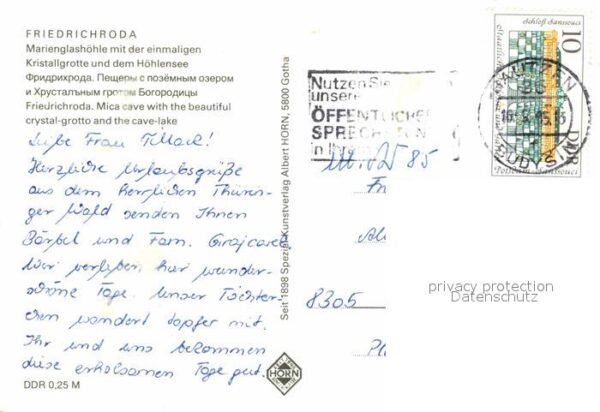 FRIEDRICHRODA
Marienglashöhle mit der einmaligen
Kristallgrotte und dem Höhlensee
Фридрихрода. Пещеры с позёмным озером
и Хрустальным гротом Богородицы
Friedrichroda. Mica cave with the beautiful
crystal-grotto and the cave-lake
Liebe Frau
Herzliche Urlaubsgrüße
aus dem herrlichen Thürin-
ger Wald senden Ihnen
Bärbel und Fam.
Wir verleben hier wunder-
schöne Tage. Unser Töchter-
chen wandert tapfer mit.
Ihr und uns bekommen
diese erholsamen Tage gut.
DDR 0,25 M
HORN
Seit 1898 Spezial-Kunstverlag Albert HORN, 5800 Gotha
Nutzen Sie
unsere
ÖFFENTLICHEN
SPRECH
in Ihrem
85
8305
Schloß Sanssouci
10
DDR
Potsdam-Sanssouci
BAUTZEN
BUDYŠ
privacy protection
Datenschutz